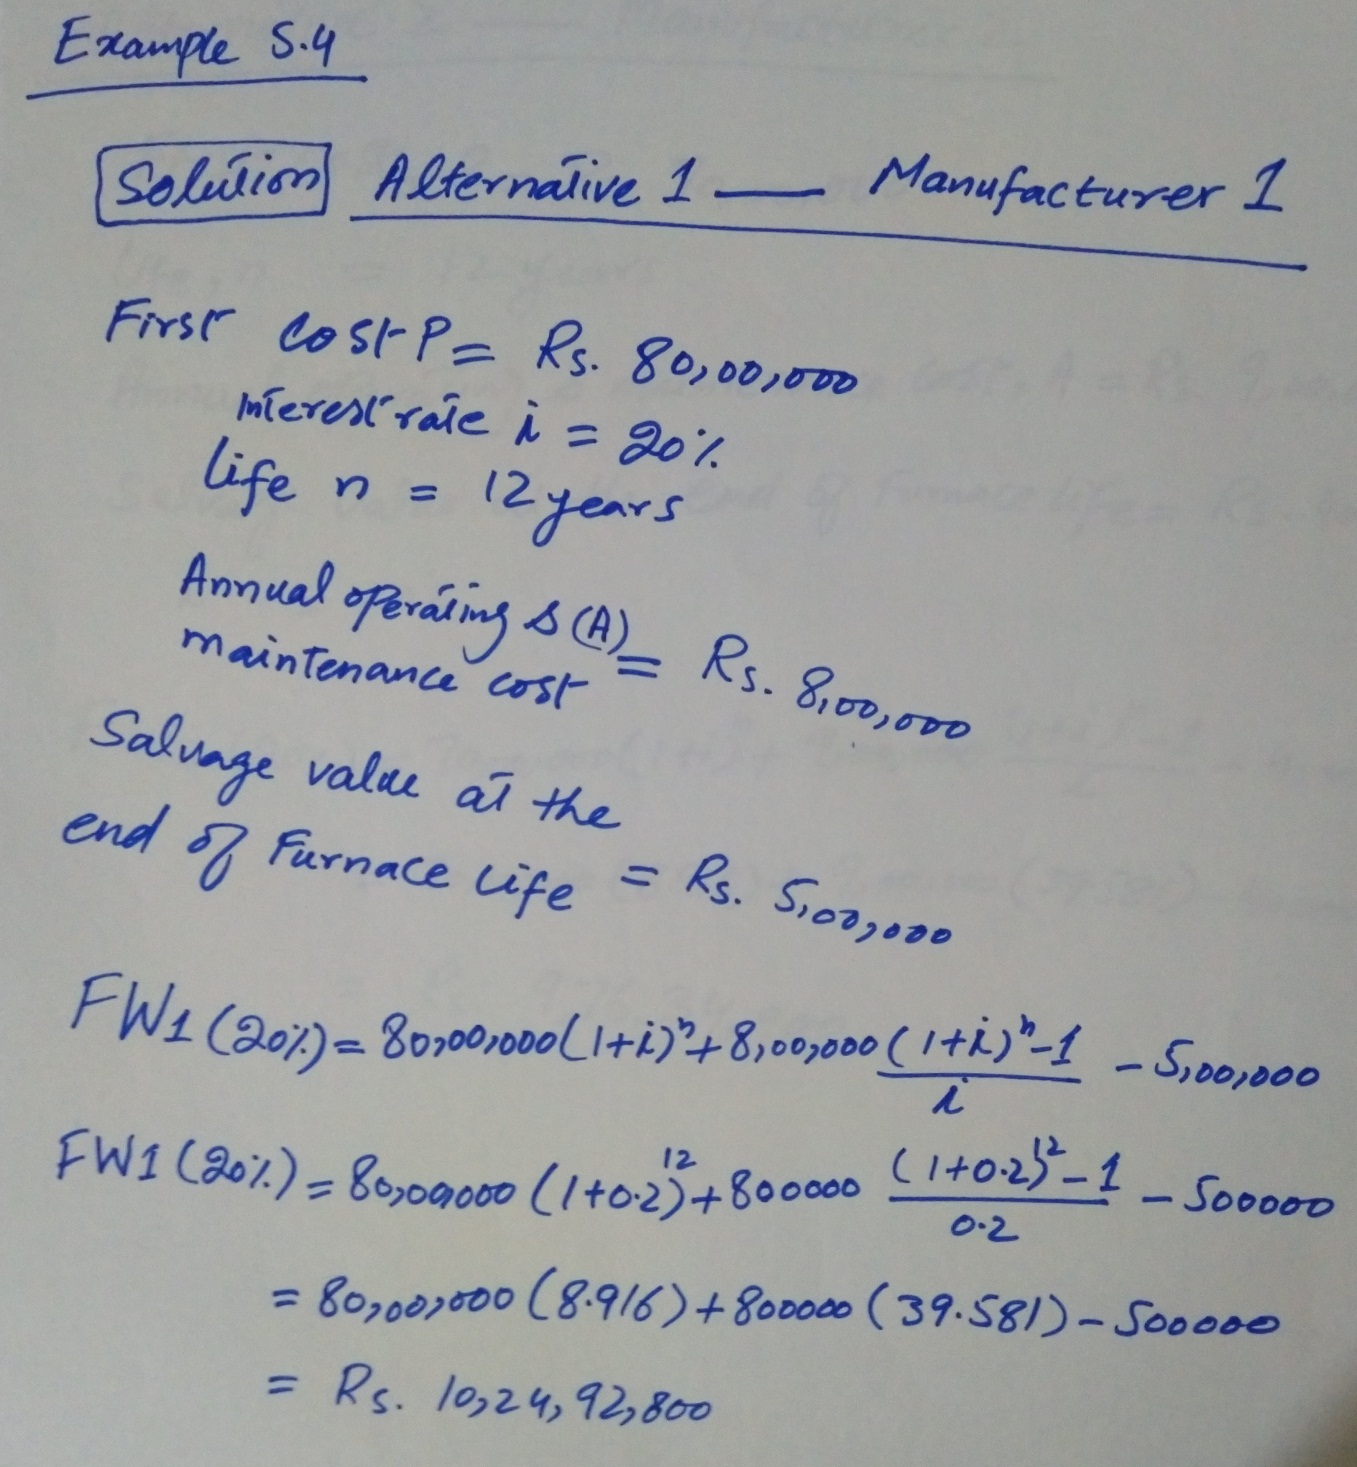 Example 5.4
Solution Alternative 1 — Manufacturer 1
First Cost P = Rs. 80,00,000
Interest rate i = 20%
Life n = 12 years
Annual operating & (A)
maintenance cost = Rs. 8,00,000
Salvage value at the
end of Furnace Life = Rs. 5,00,000
FW1 (20%) = 80,00,000 (1+i)ⁿ + 8,00,000 (1+i)ⁿ-1 / i - 5,00,000
FW1 (20%) = 80,00,000 (1+0.2)¹² + 800000 (1+0.2)¹²-1 / 0.2 - 500000
= 80,00,000 (8.916) + 800000 (39.581) - 500000
= Rs. 10,24,92,800